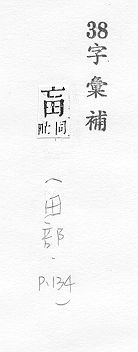 38字彙補
同
（田部.P.134）